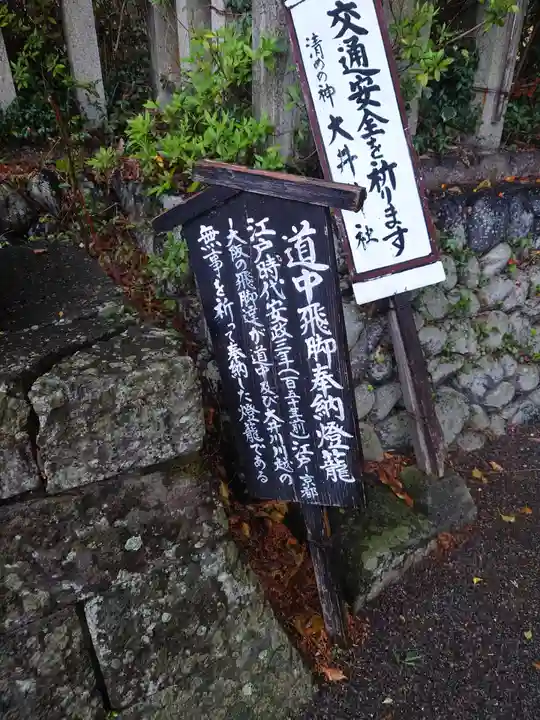 交通安全を祈ります
清めの神 大井 社
道中飛脚奉納燈籠
江戸時代安政三年(百五十年前)江戸 京都
大阪の飛脚達が道中及び大井川川越の
無事を祈って奉納した燈籠である